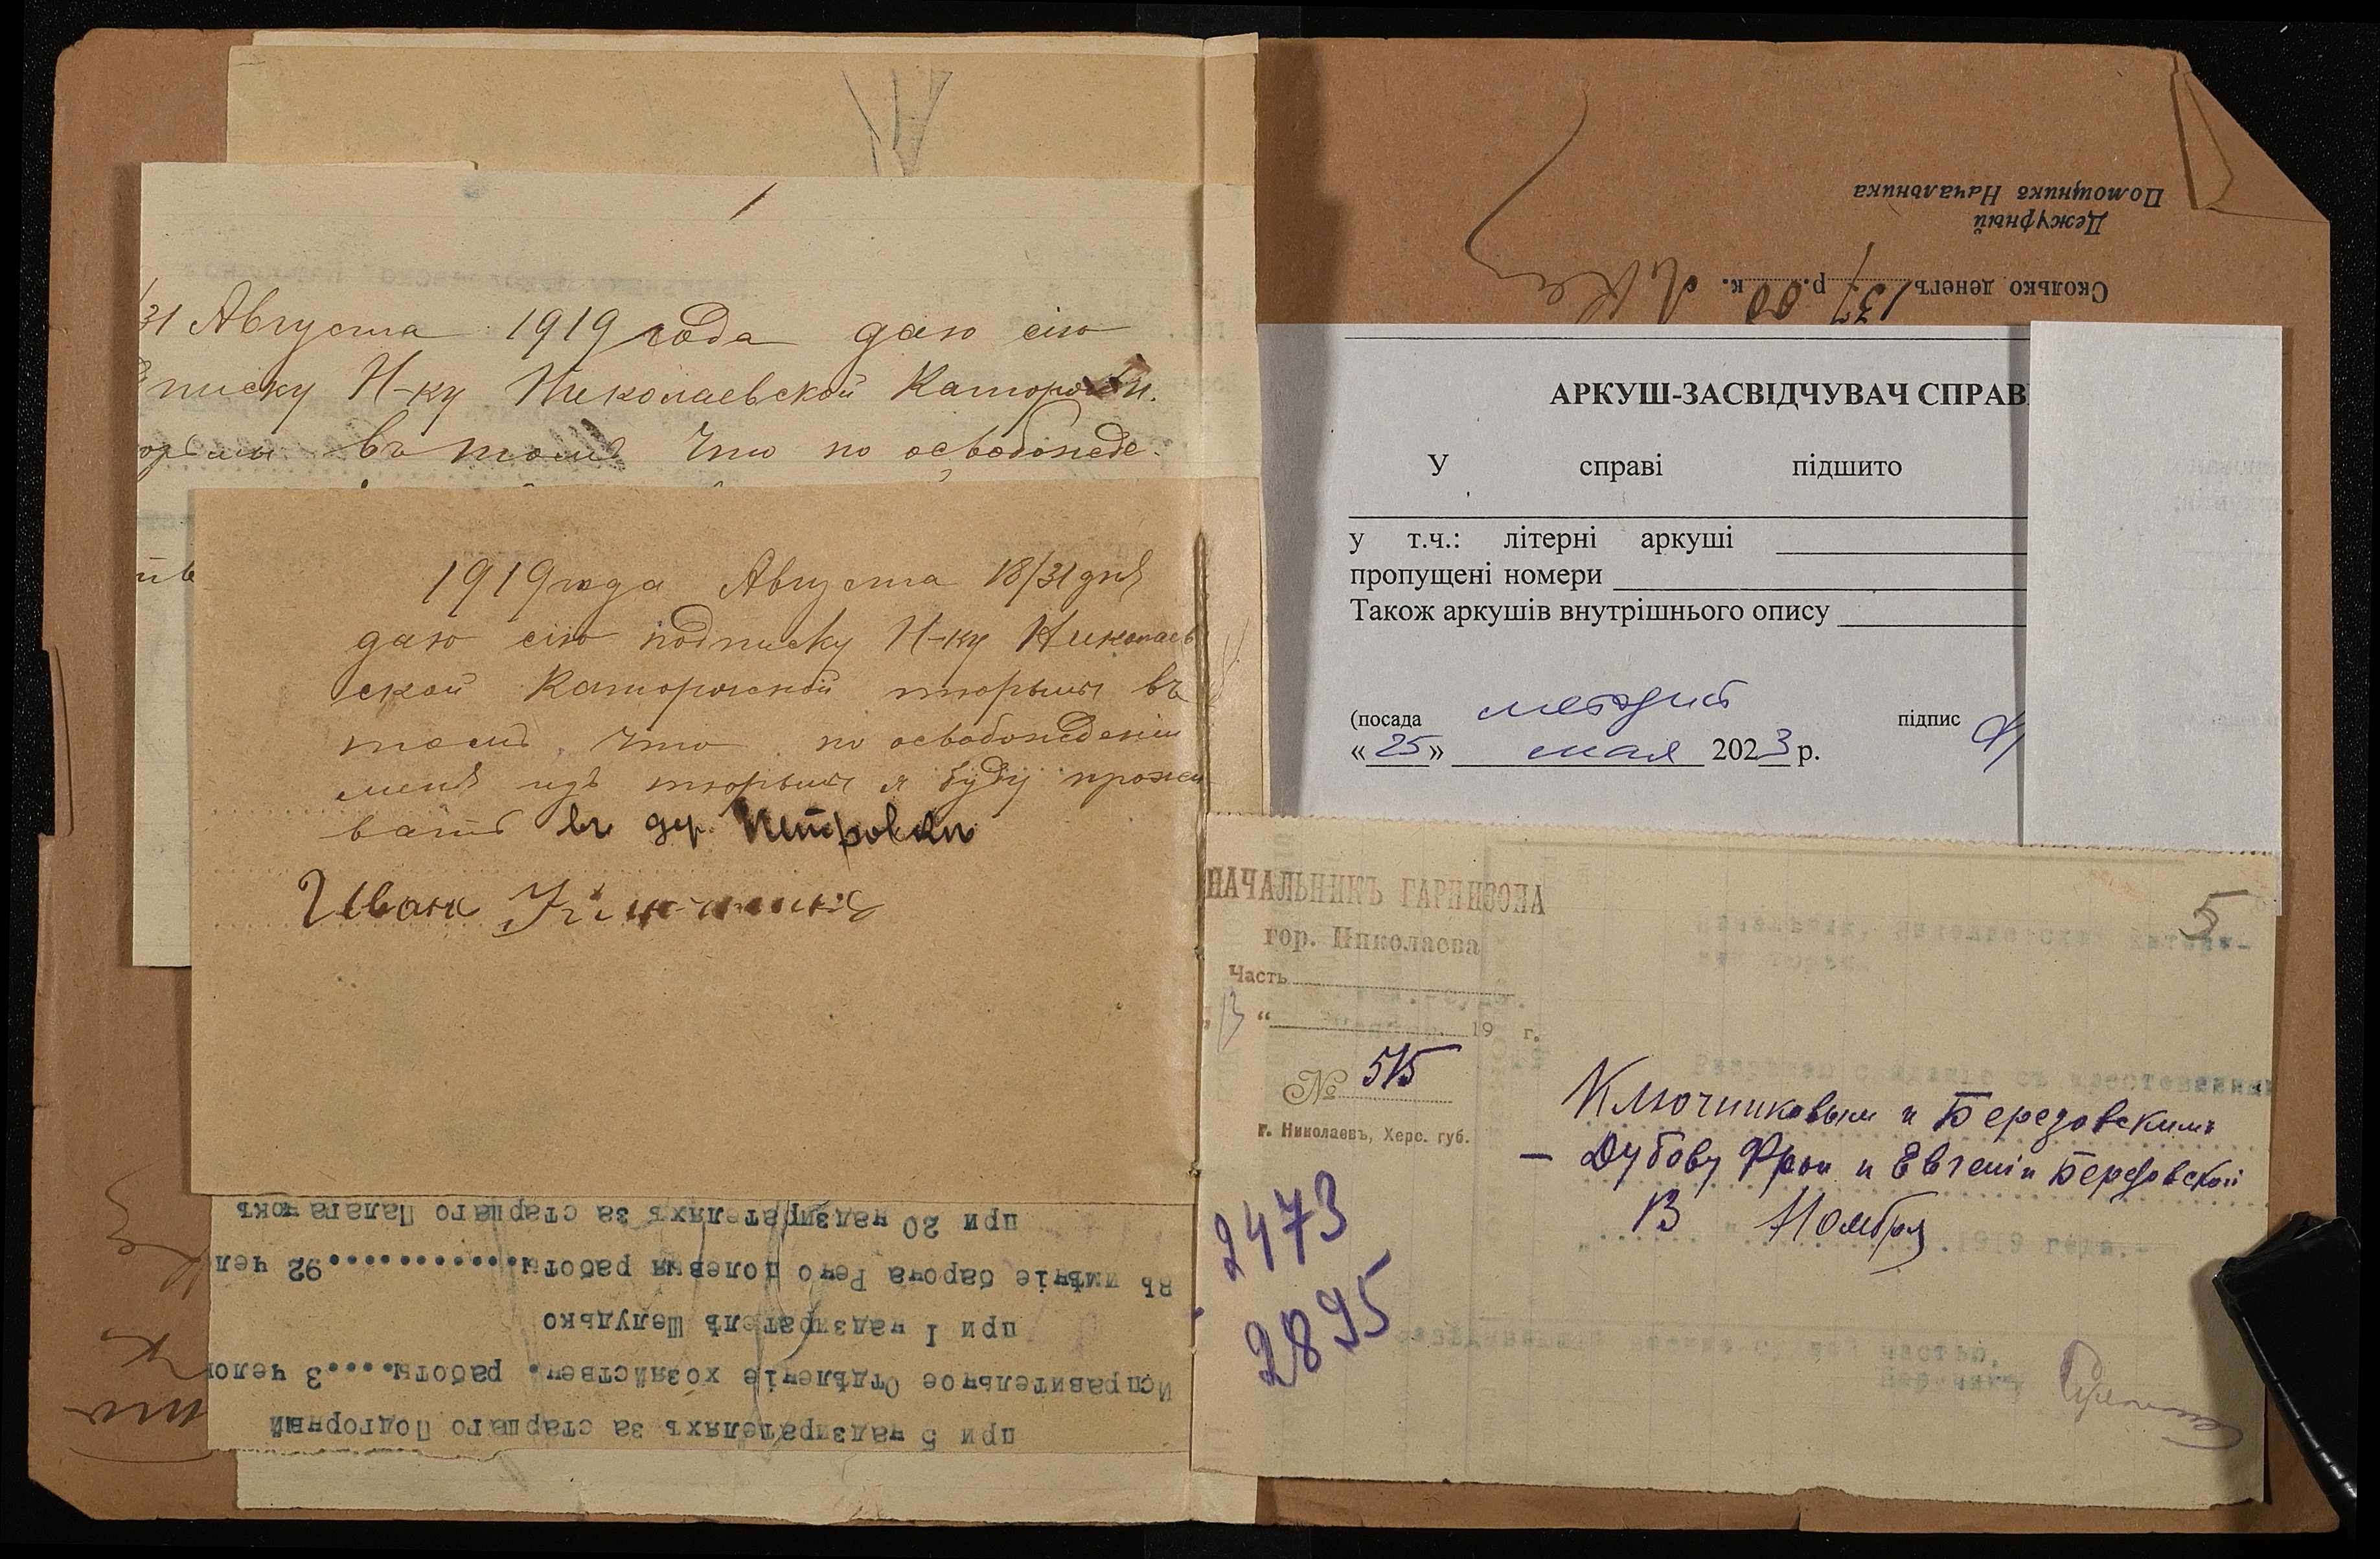 31 Августа 1919 года даю сію
писку Н-ку Николаевской Каторжн.
въ томъ что по освобожде-
1919 года Августа 18/31 дня
даю сію подписку Н-ку Николаев
ской Каторжной тюрьмы въ
томъ, что по освобожденіи
меня изъ тюрьмы я буду прожи
вать въ дер. Петровкѣ
Иванъ
при 20 надзирателяхъ за старшаго Паламачокъ
Въ имѣніе барона Рено полевыя работы............92 чел
при 1 надзирателѣ Шелудько
Исправительное Отдѣленіе хозяйствен. работы.....3 челов
при 5 надзирателяхъ за старшаго Подгорный
Сколько денегъ 137 р. 00 к.
Дежурный
Помощникъ Начальника
АРКУШ-ЗАСВІДЧУВАЧ СПРАВ
У справі підшито
у т.ч.: літерні аркуші
пропущені номери
Також аркушів внутрішнього опису
(посада підпис
«25» мая 2023 р.
5
НАЧАЛЬНИКЪ ГАРНИЗОНА
гор. Николаева
Часть
"13" 19 г.
№ 515
г. Николаевъ, Херс. губ.
2473
2895
Ключниковым и Березовскимъ
— Дубову Фрои и Евгеніи Березовской
13 Ноября
1919 года.-